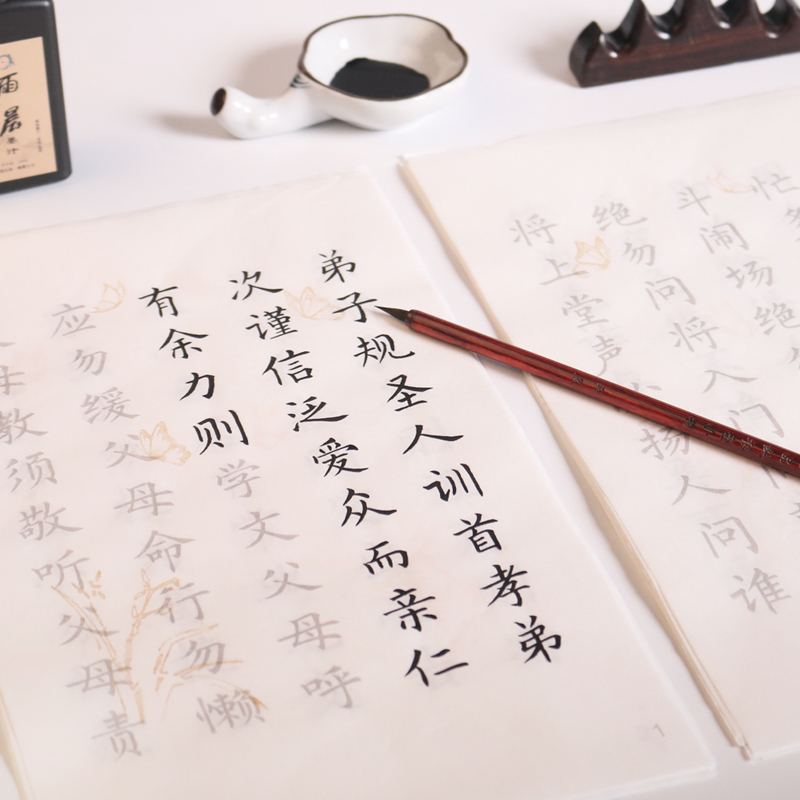 弟子规圣人训首孝弟
次谨信泛爱众而亲仁
有余力则学文父母呼
应勿缓父母命行勿懒
母教须敬听父母责
1
忙
斗闹场绝
绝勿问将入门
将上堂声必扬人问谁
墨汁